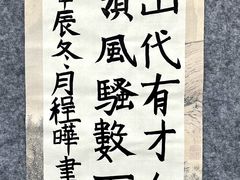 山代有才
領風騷數
甲辰冬月程曄書